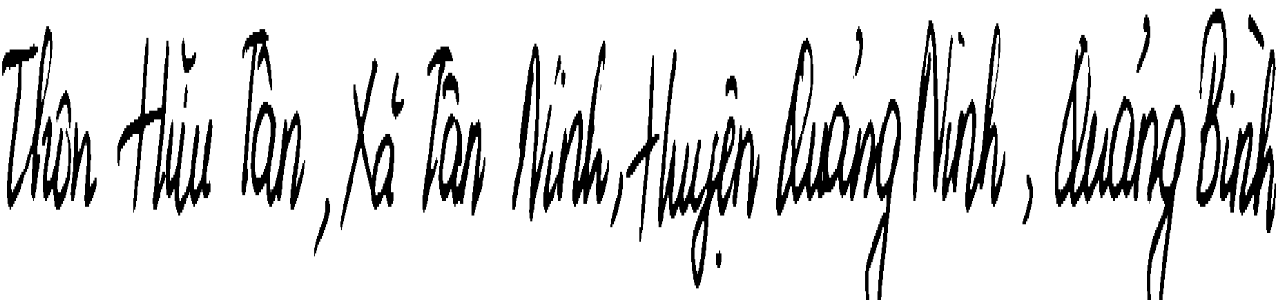 Thôn Hữu Tân, Xã Tân Ninh, Huyện Quảng Ninh, Quảng Bình